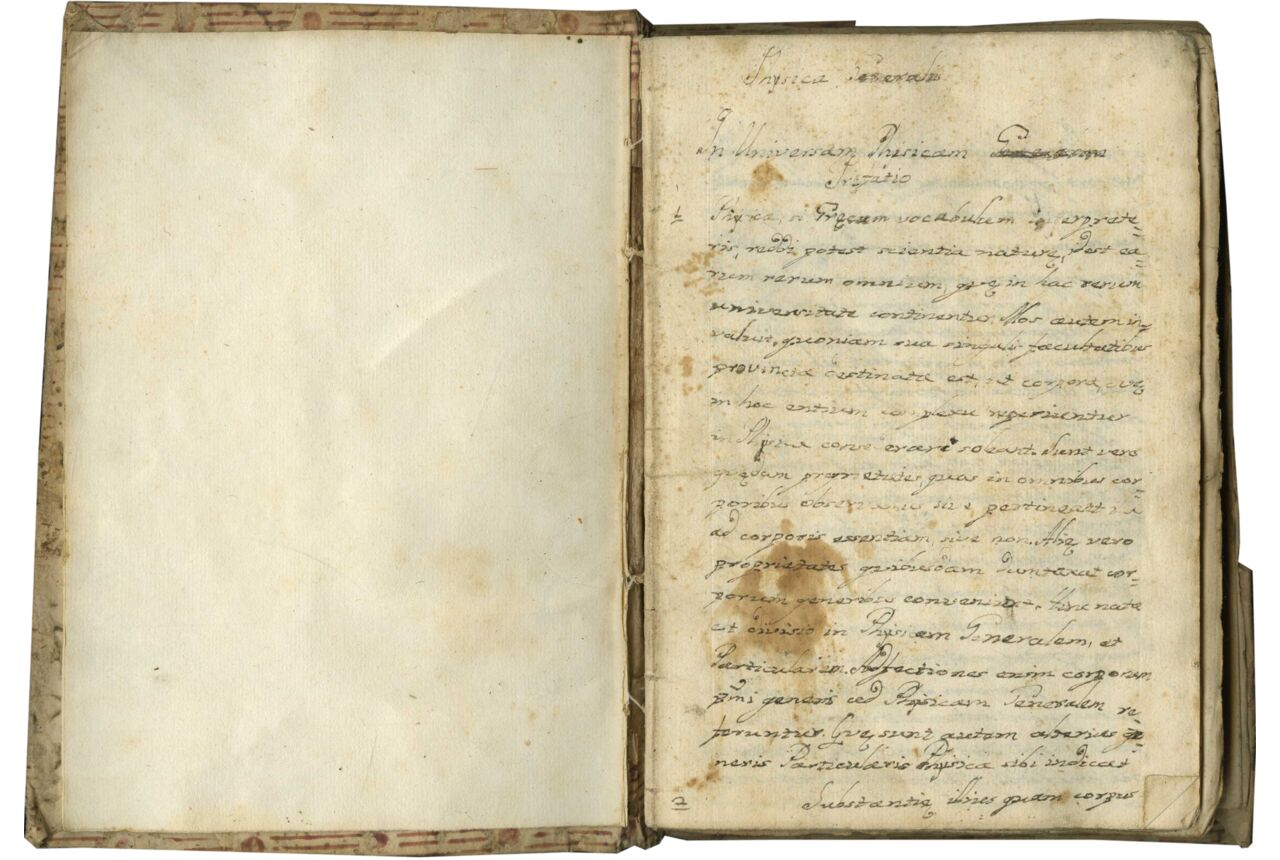 Physica Generalis
In Universam Phisicam
1
Physica, si Gręcum vocabulum interprete-
ris, reddi potest scientia naturę, idest ea-
rum rerum omnium, quę in hac rerum
universitate continentur. Mos autem in-
valuit, quoniam sua singulis facultatibus
provincia destinata est, ut corpora, quę
in hoc entium complexu reperiuntur
in Physica considerari soleant. Sunt vero
quędam proprietates, quas in omnibus cor-
poribus observamus, sive pertineant
ad corporis essentiam, sive non. Alię vero
proprietates quibusdam dumtaxat cor-
porum generibus conveniunt. Hinc nata
est divisio in Physicam Generalem, et
Particularem. Adfectiones enim corporum
pmi generis ad Physicam Generalem re
feruntur. Quę sunt autem alterius ge
neris Particularis Physica sibi indicat
2 Substantię quam corpus